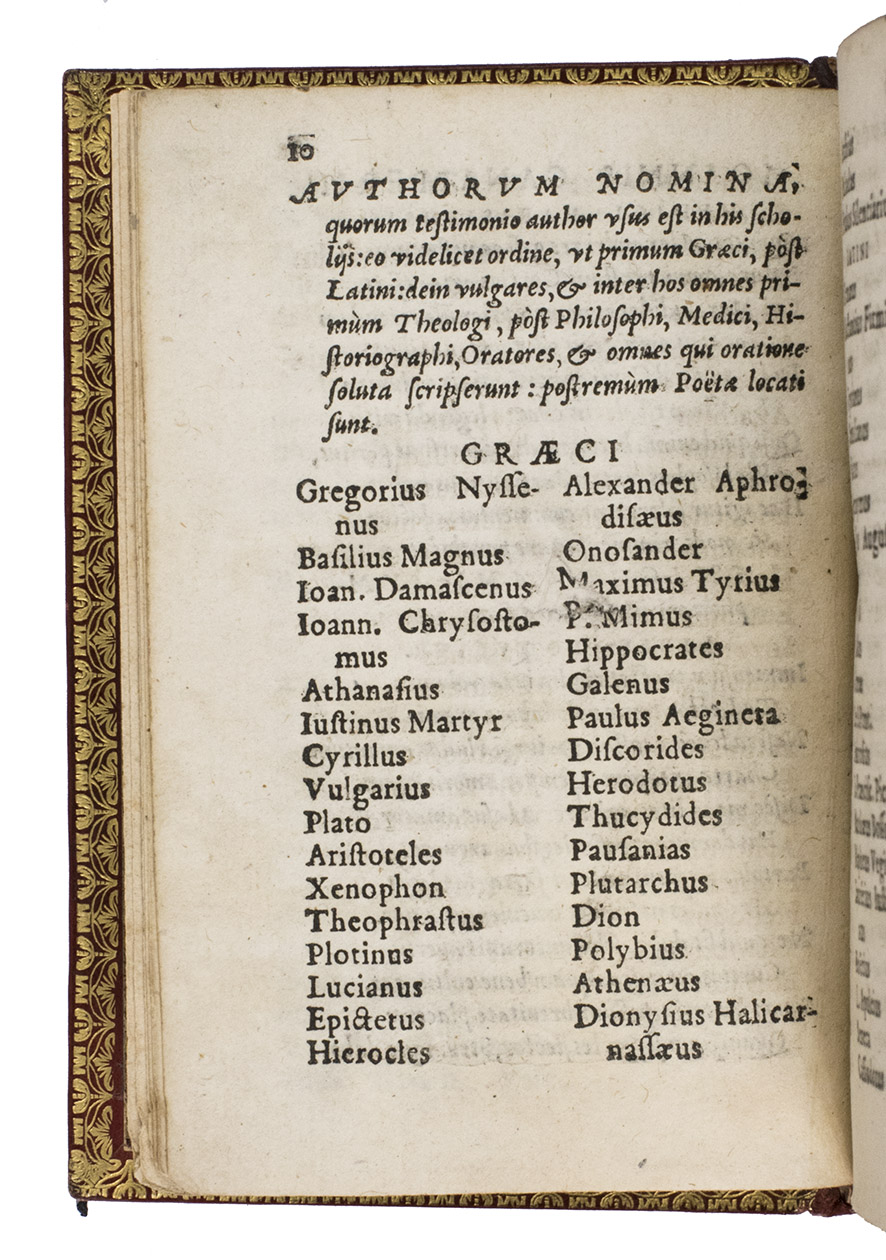 10
AVTHORVM NOMINA,
quorum teſtimonio author vſus eſt in his ſcho-
lijs: eo videlicet ordine, vt primum Græci, pòſt
Latini: dein vulgares, & inter hos omnes pri-
mùm Theologi, pòſt Philoſophi, Medici, Hi-
ſtoriographi, Oratores, & omnes qui oratione
ſoluta ſcripſerunt : poſtremùm Poëtæ locati
ſunt.
GRÆCI
Gregorius Nyſſe-
nus
Baſilius Magnus
Ioan. Damaſcenus
Ioann. Chryſoſto-
mus
Athanaſius
Iuſtinus Martyr
Cyrillus
Vulgarius
Plato
Ariſtoteles
Xenophon
Theophraſtus
Plotinus
Lucianus
Epictetus
Hierocles
Alexander Aphro-
diſæus
Onoſander
Maximus Tyrius
P. Mimus
Hippocrates
Galenus
Paulus Aegineta
Diſcorides
Herodotus
Thucydides
Pauſanias
Plutarchus
Dion
Polybius
Athenæus
Dionyſius Halicar-
naſſæus